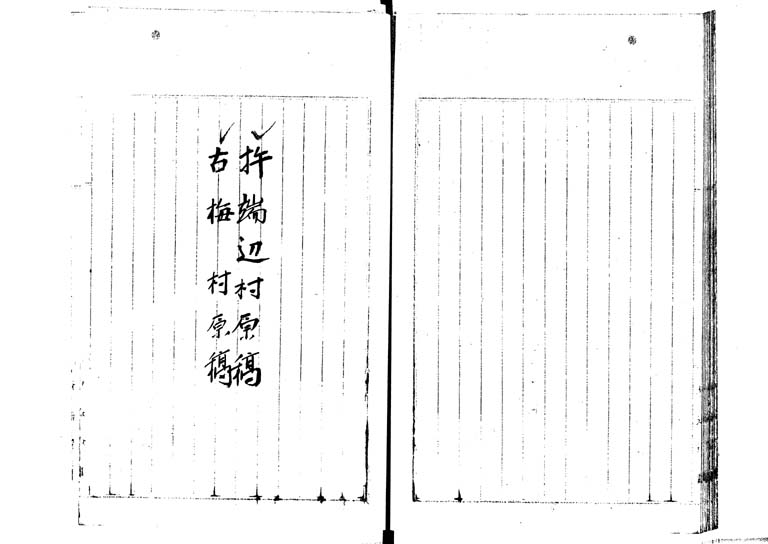 抙端辺村原稿
古梅村原稿